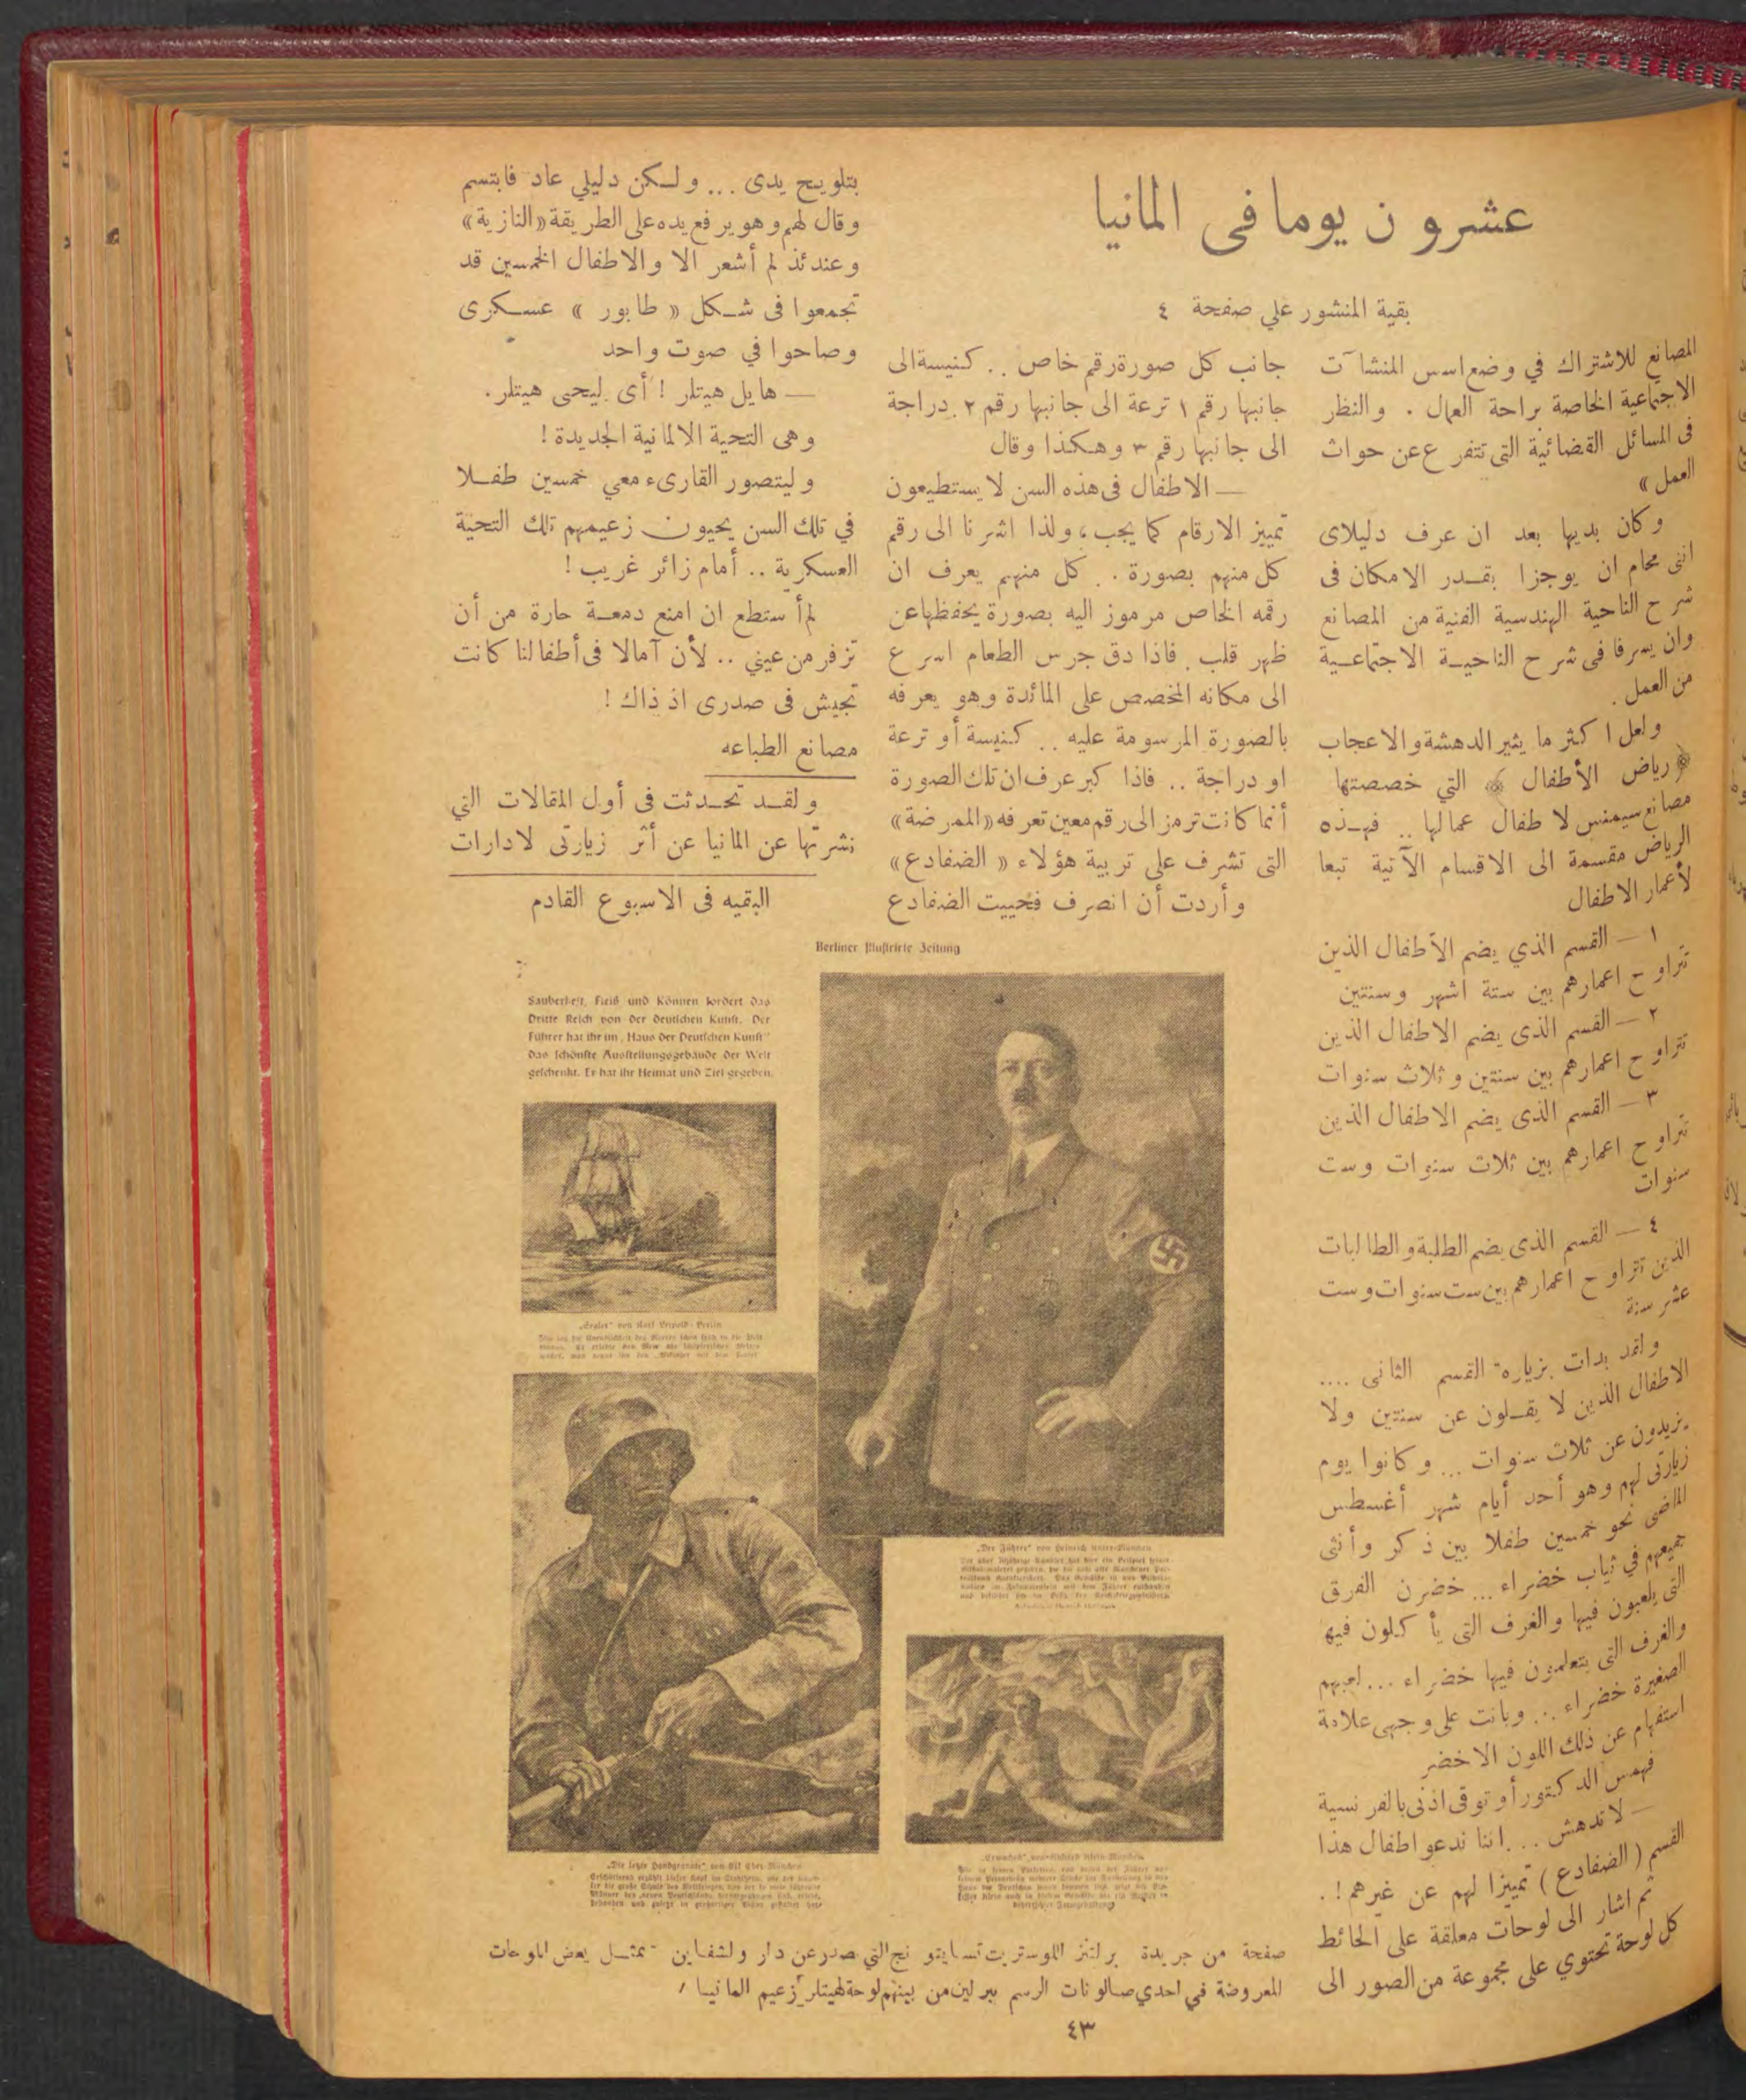 عشرون يوما في المانيا
بقية المنشور على صفحة ٤
المصانع للاشتراك في وضع اسس المنشآت
الاجتماعية الخاصة براحة العمال . والنظر
فى المسائل القضائية التى تتفرع عن حواث
العمل »
وكان بديها بعد ان عرف دليلاى
اننى محام ان يوجزا بقدر الامكان فى
شرح الناحية الهندسية الفنية من المصانع
وان يسرفا فى شرح الناحية الاجتماعية
من العمل .
ولعل اكثر ما يثير الدهشة والاعجاب
﴿ رياض الأطفال ﴾ التي خصصتها
مصانع سيمنس لاطفال عمالها .. فهذه
الرياض مقسمة الى الاقسام الآتية تبعا
لأعمار الاطفال
١ — القسم الذي يضم الأطفال الذين
تتراوح اعمارهم بين ستة اشهر وسنتين
٢ — القسم الذى يضم الاطفال الذين
تتراوح اعمارهم بين سنتين وثلاث سنوات
٣ — القسم الذى يضم الاطفال الذين
تتراوح اعمارهم بين ثلاث سنوات وست
سنوات
٤ — القسم الذى يضم الطلبة والطالبات
الذين تتراوح اعمارهم بين ست سنوات وست
عشر سنة
ولقد بدات بزيارة القسم الثانى ....
الاطفال الذين لا يقلون عن سنتين ولا
يزيدون عن ثلاث سنوات ... وكانوا يوم
زيارتى لهم وهو أحد أيام شهر أغسطس
الماضى نحو خمسين طفلا بين ذكر وأنثى
جميعهم في ثياب خضراء ... خضرن الفرق
التى يلعبون فيها والغرف التى يأكلون فيها
والغرف التى يتعلمون فيها خضراء ... لعبهم
الصغيرة خضراء ... وبانت على وجهى علامة
استفهام عن ذلك اللون الاخضر
فهمس الدكتور أوتو فى اذنى بالفرنسية
— لا تدهش ... اننا ندعو اطفال هذا
القسم ( الضفادع ) تميزا لهم عن غيرهم ! .
ثم اشار الى لوحات معلقة على الحائط
كل لوحة تحتوي على مجموعة من الصور الى
جانب كل صورة رقم خاص .. كنيسة الى
جانبها رقم ١ ترعة الى جانبها رقم ٢ دراجة
الى جانبها رقم ٣ وهكذا وقال
— الاطفال فى هذه السن لا يستطيعون
تمييز الارقام كما يجب ، ولذا اشرنا الى رقم
كل منهم بصورة .. كل منهم يعرف ان
رقمه الخاص مرموز اليه بصورة يحفظها عن
ظهر قلب . فاذا دق جرس الطعام اسرع
الى مكانه المخصص على المائدة وهو يعرفه
بالصورة المرسومة عليه .. كنيسة أو ترعة
او دراجة .. فاذا كبر عرف ان تلك الصورة
أنما كانت ترمز الى رقم معين تعرفه «الممرضة»
التى تشرف على تربية هؤلاء « الضفادع»
وأردت أن انصرف فحييت الضفادع
بتلويح يدى ... ولكن دليلي عاد فابتسم
وقال لهم وهو يرفع يده على الطريقة «النازية»
وعندئذ لم أشعر الا والاطفال الخمسين قد
تجمعوا فى شكل « طابور » عسكرى
وصاحوا في صوت واحد
— هايل هيتلر ! أى ليحى هيتلر .
وهى التحية الالمانية الجديدة !
وليتصور القارىء معي خمسين طفلا
في تلك السن يحيون زعيمهم تلك التحية
العسكرية .. أمام زائر غريب !
لم أستطع ان امنع دمعة حارة من أن
تزفر من عيني .. لأن آمالا فى أطفالنا كانت
تجيش فى صدرى اذ ذاك !
مصانع الطباعه
ولقد تحدثت فى أول المقالات التي
نشرتها عن المانيا عن أثر زيارتى لادارات
البقيه فى الاسبوع القادم
Berliner Illustrirte Zeitung
Sauberkeit, Fleiß und Können fordert das
Dritte Reich von der deutschen Kunst. Der
Führer hat ihr im „Haus der Deutschen Kunst"
das schönste Ausstellungsgebäude der Welt
geschenkt. Er hat ihr Heimat und Ziel gegeben.
„Segler" von Karl Leipold-Berlin
„Der Führer" von Heinrich Knirr-München
„Die letzte Handgranate" von Elk Eber-München
„Erwachen" von Richard Klein-München
صفحة من جريدة برلنز اللوستريت تسايتونج التي صدر عن دار ولشفاين تمثل بعض اللوحات
المعروضة في احدي صالونات الرسم ببرلين من بينهم لوحة لهيتلر زعيم المانيا
٤٣